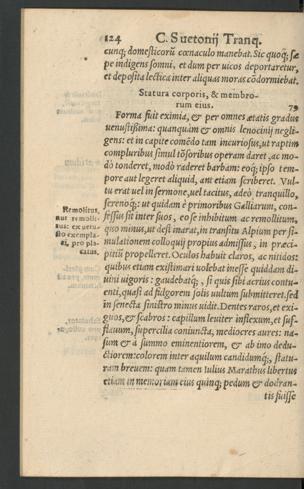 124 C. Suetonij Tranq.
cunq; domesticorū cœnaculo manebat. Sic quoq; sæ
pe indigens somni, et dum per uicos deportaretur,
et deposita lectica inter aliquas moras cōdormiebat.
Statura corporis, & membro-
rum eius. 79
Forma fuit eximia, & per omnes ætatis gradus
uenustissima: quanquàm & omnis lenocinij negli-
gens: et in capite comēdo tam incuriosus, ut raptim
compluribus simul tōsoribus operam daret, ac mo-
dò tonderet, modò raderet barbam: eoq; ipso tem-
pore aut legeret aliquid, aut etiam scriberet. Vul-
tu erat uel in sermone, uel tacitus, adeò tranquillo,
serenoq; ut quidam è primoribus Galliarum, con-
fessus sit inter suos, eo se inhibitum ac remollitum,
quo minus, ut destinarat, in transitu Alpium per si-
mulationem colloquij propius admissus, in præci-
pitiū propelleret. Oculos habuit claros, ac nitidos:
quibus etiam existimari uolebat inesse quiddam di-
uini uigoris: gaudebatq; , si quis sibi acrius contu-
enti, quasi ad fulgorem solis uultum submitteret. sed
in senecta sinistro minus uidit. Dentes raros, et exi-
guos, & scabros: capillum leuiter inflexum, et suf-
flauum, supercilia coniuncta, mediocres aures: na-
sum & à summo eminentiorem, & ab imo dedu-
ctiorem: colorem inter aquilum candidumq; , statu-
ram breuem: quam tamen Iulius Marathus libertus
etiam in memoriam eius quinq; pedum & dodran-
tis fuisse
Remolitus,
aut remolli-
tus: ex uetu-
sto exempla-
ri, pro pla-
catus,